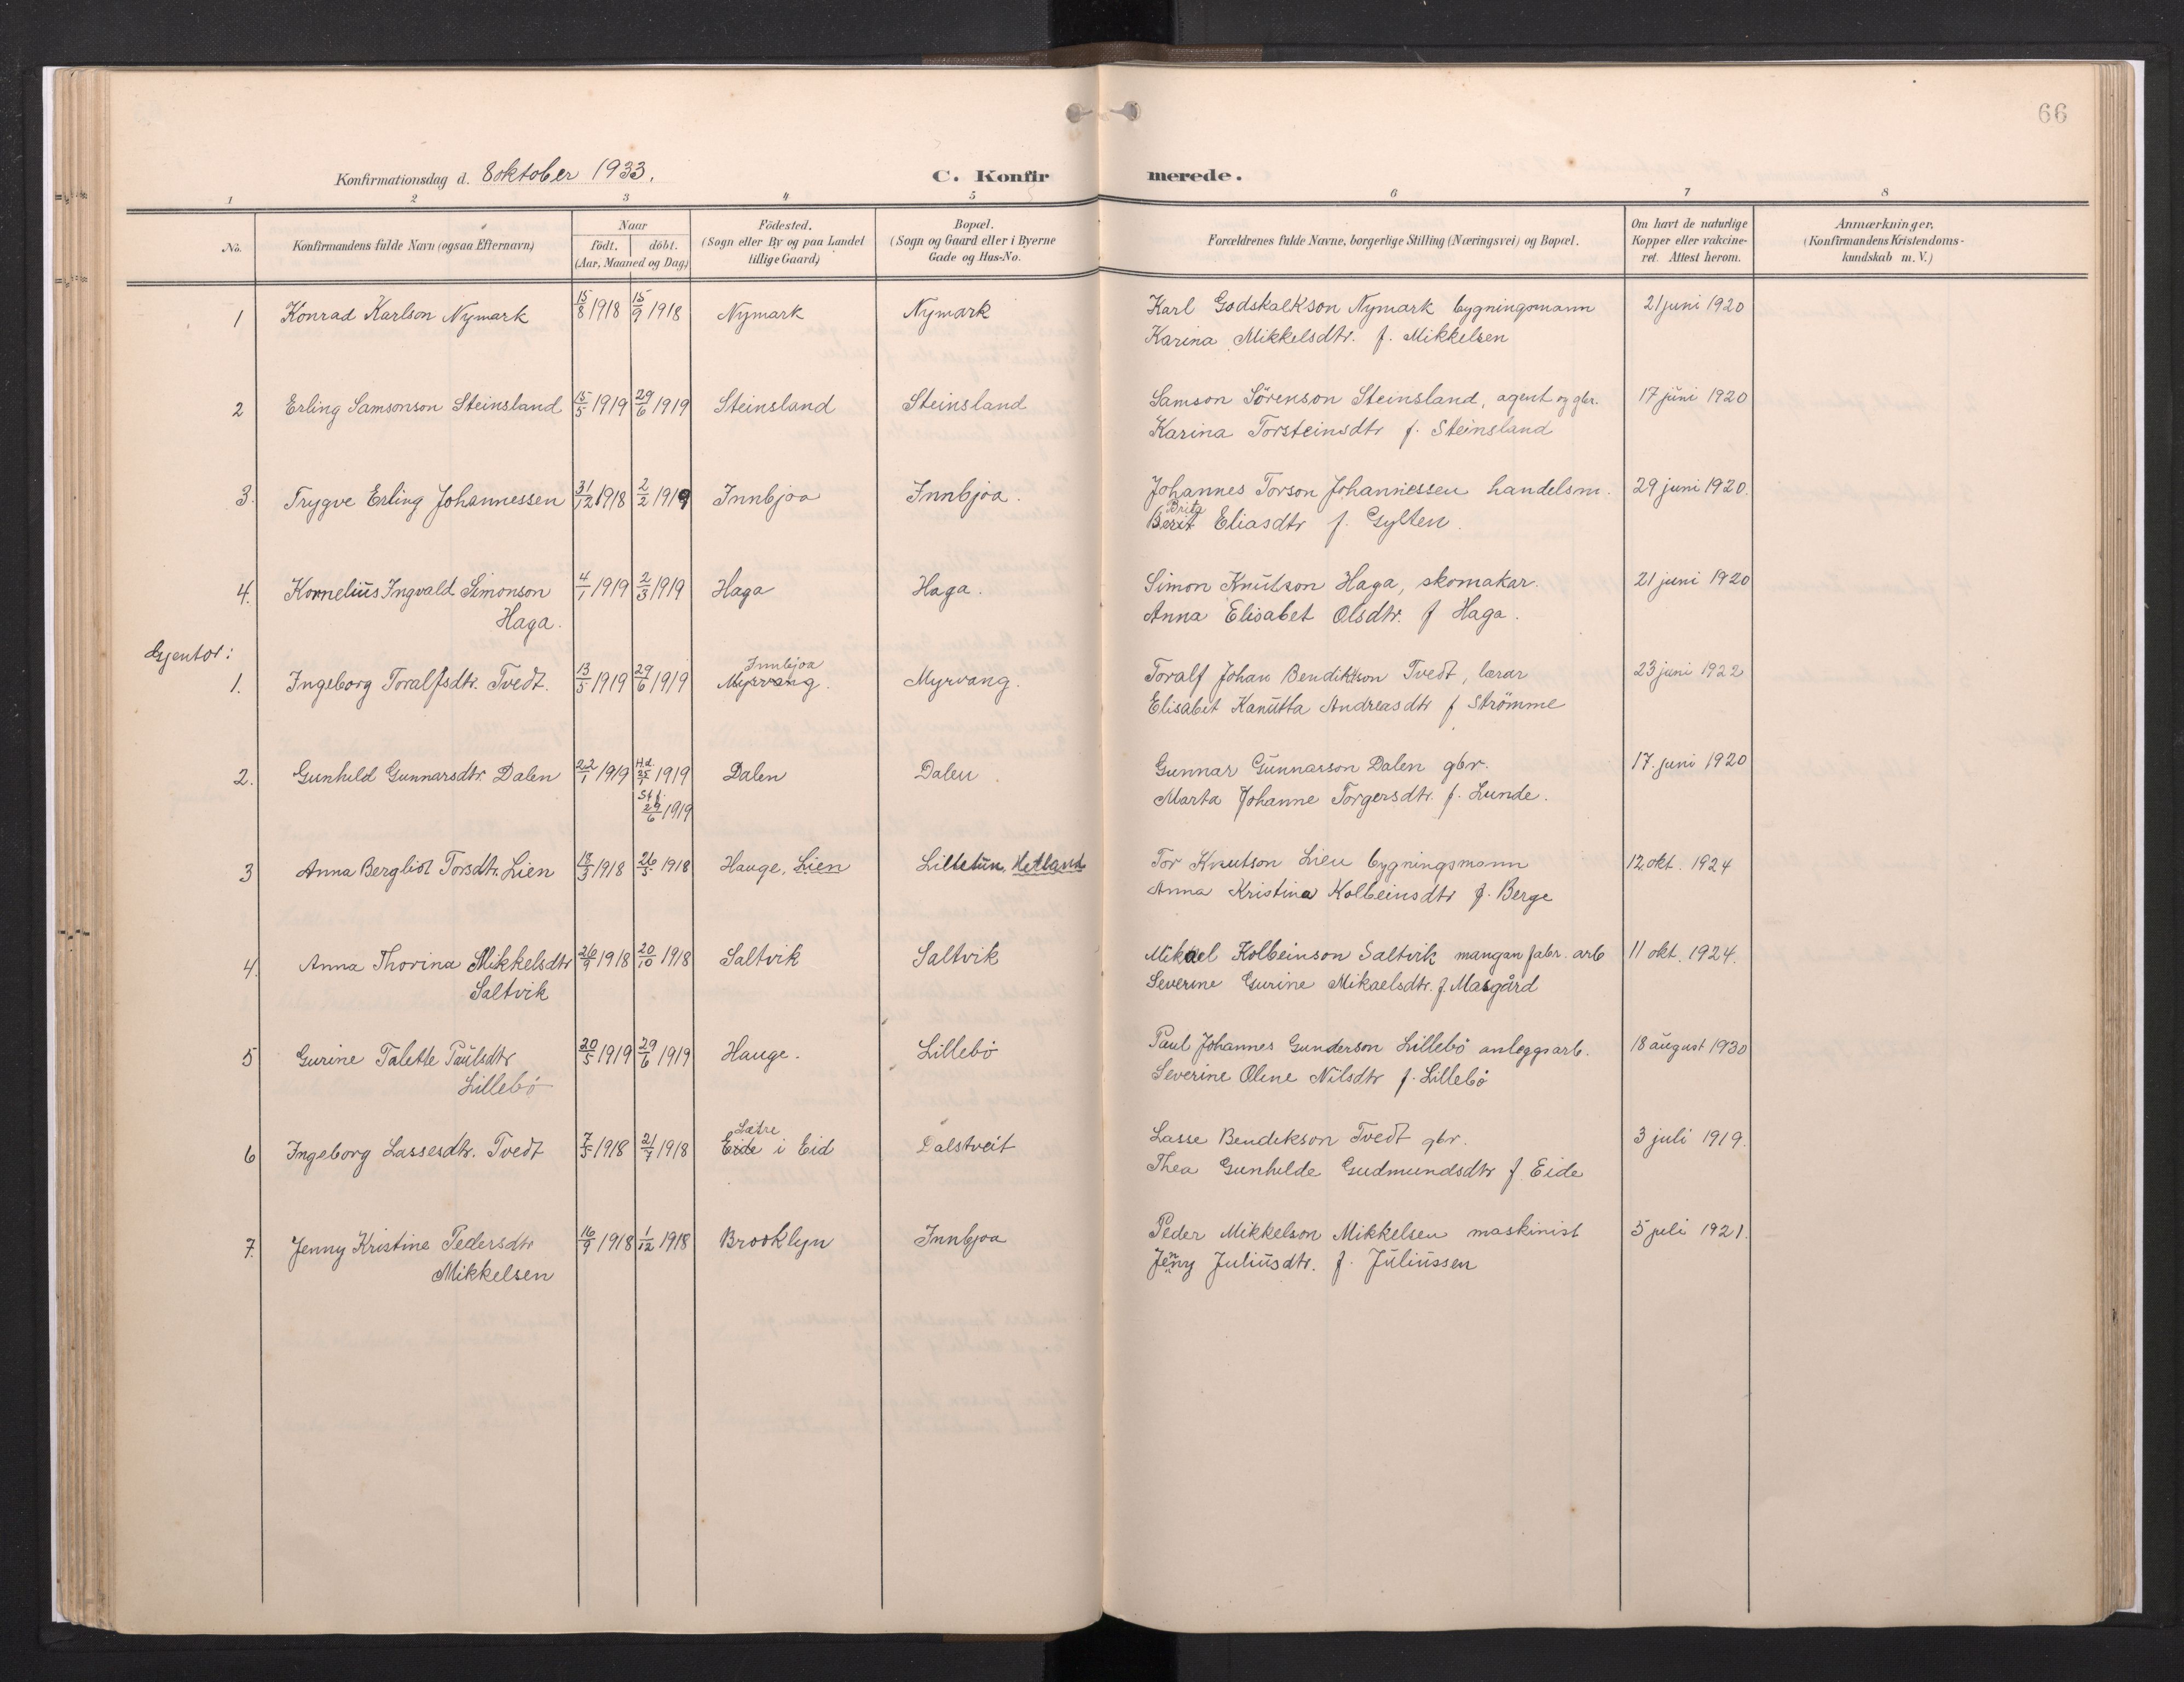 66
Konfirmationsdag d. 8 oktober 1933.
C. Konfirmerede.
1 2 3 4 5 6 7 8
No.
Konfirmandens fulde Navn (ogsaa Efternavn)
Naar
født. døbt.
(Aar, Maaned og Dag)
Fødested.
(Sogn eller By og paa Landet
tillige Gaard)
Bopæl.
(Sogn og Gaard eller i Byerne
Gade og Hus-No.
Forældrenes fulde Navne, borgerlige Stilling (Næringsvei) og Bopæl.
Om havt de naturlige
Kopper eller vakcine-
ret. Attest herom.
Anmærkninger.
(Konfirmandens Kristendoms-
kundskab m. V.)
1 Konrad Karlson Nymark 15/8 1918 15/9 1918 Nymark Nymark Karl Godskalkson Nymark bygningsmann 21 juni 1920
Karina Mikkelsdtr. f. Mikkelsen
2 Erling Samsonson Steinsland 15/5 1919 29/6 1919 Steinsland Steinsland Samson Sørenson Steinsland, agent og gbr. 17 juni 1920
Karina Torsteinsdtr f. Steinsland
3. Trygve Erling Johannessen 31/12 1918 2/2 1919 Innbjoa Innbjoa. Johannes Torson Johannessen handelsm. 29 juni 1920.
Brita
Berit Eliasdtr f. Gylten.
4. Kornelius Ingvald Simonson 4/1 1919 2/3 1919 Haga Haga. Simon Knutson Haga, skomakar. 21 juni 1920
Haga. Anna Elisabet Olsdtr. f Haga.
Gjentor:
Innbjoa
1. Ingeborg Toralfsdtr. Tvedt. 13/5 1919 29/6 1919 Myrvang. Myrvang. Toralf Johan Bendikson Tvedt, lærar 23 juni 1922
Elisabet Kanutta Andreasdtr f Strömme
2. Gunhild Gunnarsdtr Dalen 22/1 1919 H.d. 25/1 1919 Dalen Dalen. Gunnar Gunnarson Dalen gbr. 17. juni 1920
St.f. 29/6 1919 Marta Johanne Torgersdtr. f. Lunde.
3 Anna Bergliot Torsdtr. Lien 18/3 1918 26/5 1918 Hauge, Lien Litletun, Hetland Tor Knutson Lien bygningsmann 12. okt. 1924
Anna Kristina Kolbeinsdtr f. Berge
4. Anna Thorina Mikkelsdtr 26/9 1918 20/10 1918 Saltvik Saltvik Mikael Kolbeinson Saltvik mangan fabr. arb 11 okt. 1924.
Saltvik Severine Gurine Mikaelsdtr. f. Masgård
5 Gurine Talette Paulsdtr 20/5 1919 29/6 1919 Hauge. Lillebø Paul Johannes Gunderson Lillebø anleggsarb. 18 august 1930
Lillebø Severine Oline Nilsdtr f. Lillebø
Lætre
6 Ingeborg Lassesdtr. Tvedt 7/5 1918 21/7 1918 Eide i Eid Dalstveit Lasse Bendikson Tvedt gbr. 3 juli 1919.
Thea Gunhilde Gudmundsdtr f Eide
7. Jenny Kristine Pedersdtr 16/9 1918 1/12 1918 Brooklyn Innbjoa Peder Mikkelson Mikkelsen maskinist 5 juli 1921.
Mikkelsen Jenny Juliusdtr. f. Juliussen